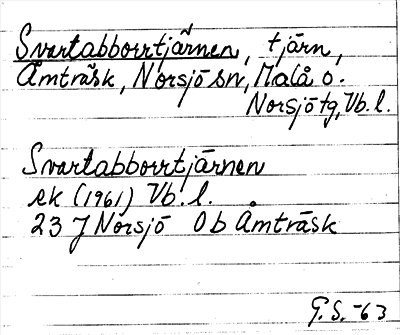 Svartabborrtjärnen, tjärn,
Åmträsk, Norsjö sn, Malå o.
Norsjö tg, Vb. l.
Svartabborrtjärnen
ek (1961) Vb. l.
23 J Norsjö 0b Åmträsk
G. S. -63